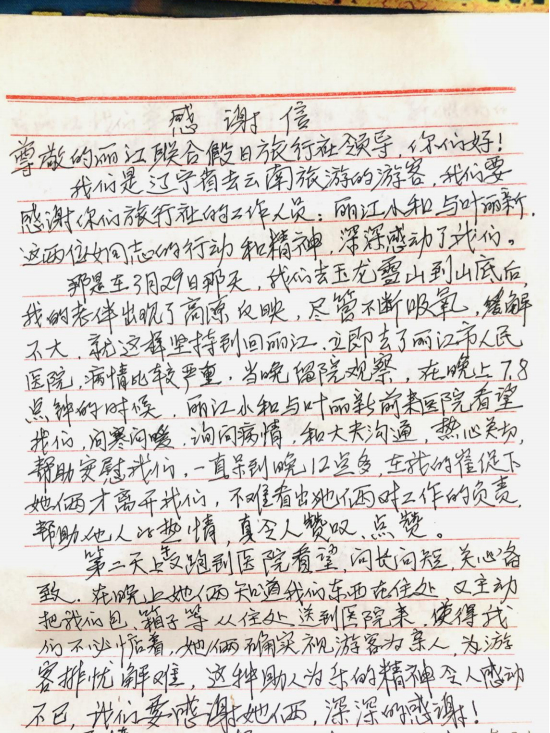 感谢信
尊敬的丽江联合假日旅行社领导，你们好！
我们是辽宁省去云南旅游的游客，我们要
感谢你们旅行社的工作人员：丽江小和与叶丽新，
这两位女同志的行动和精神，深深感动了我们。
那是在3月29日那天，我们去玉龙雪山到山底后，
我的老伴出现了高原反映，尽管不断吸氧，缓解
不大，就这样坚持到回丽江，立即去了丽江市人民
医院，病情比较严重，当晚留院观察，在晚上7.8
点钟的时候，丽江小和与叶丽新前来医院看望
我们，问寒问暖，询问病情，和大夫沟通，热心关切，
帮助安慰我们，一直呆到晚12点多，在我的崔促下
她俩才离开我们，不难看出她俩对工作的负责，
帮助他人的热情，真令人赞叹、点赞。
第二天上又跑到医院看望，问长问短，关心备
致，在晚上她俩知道我们东西在住处，又主动
把我们包、箱子等从住处送到医院来，使得我
们不必惦着，她俩确实视游客为亲人，为游
客排忧解难，这种助人为乐的精神令人感动
不已，我们要感谢她俩，深深的感谢！